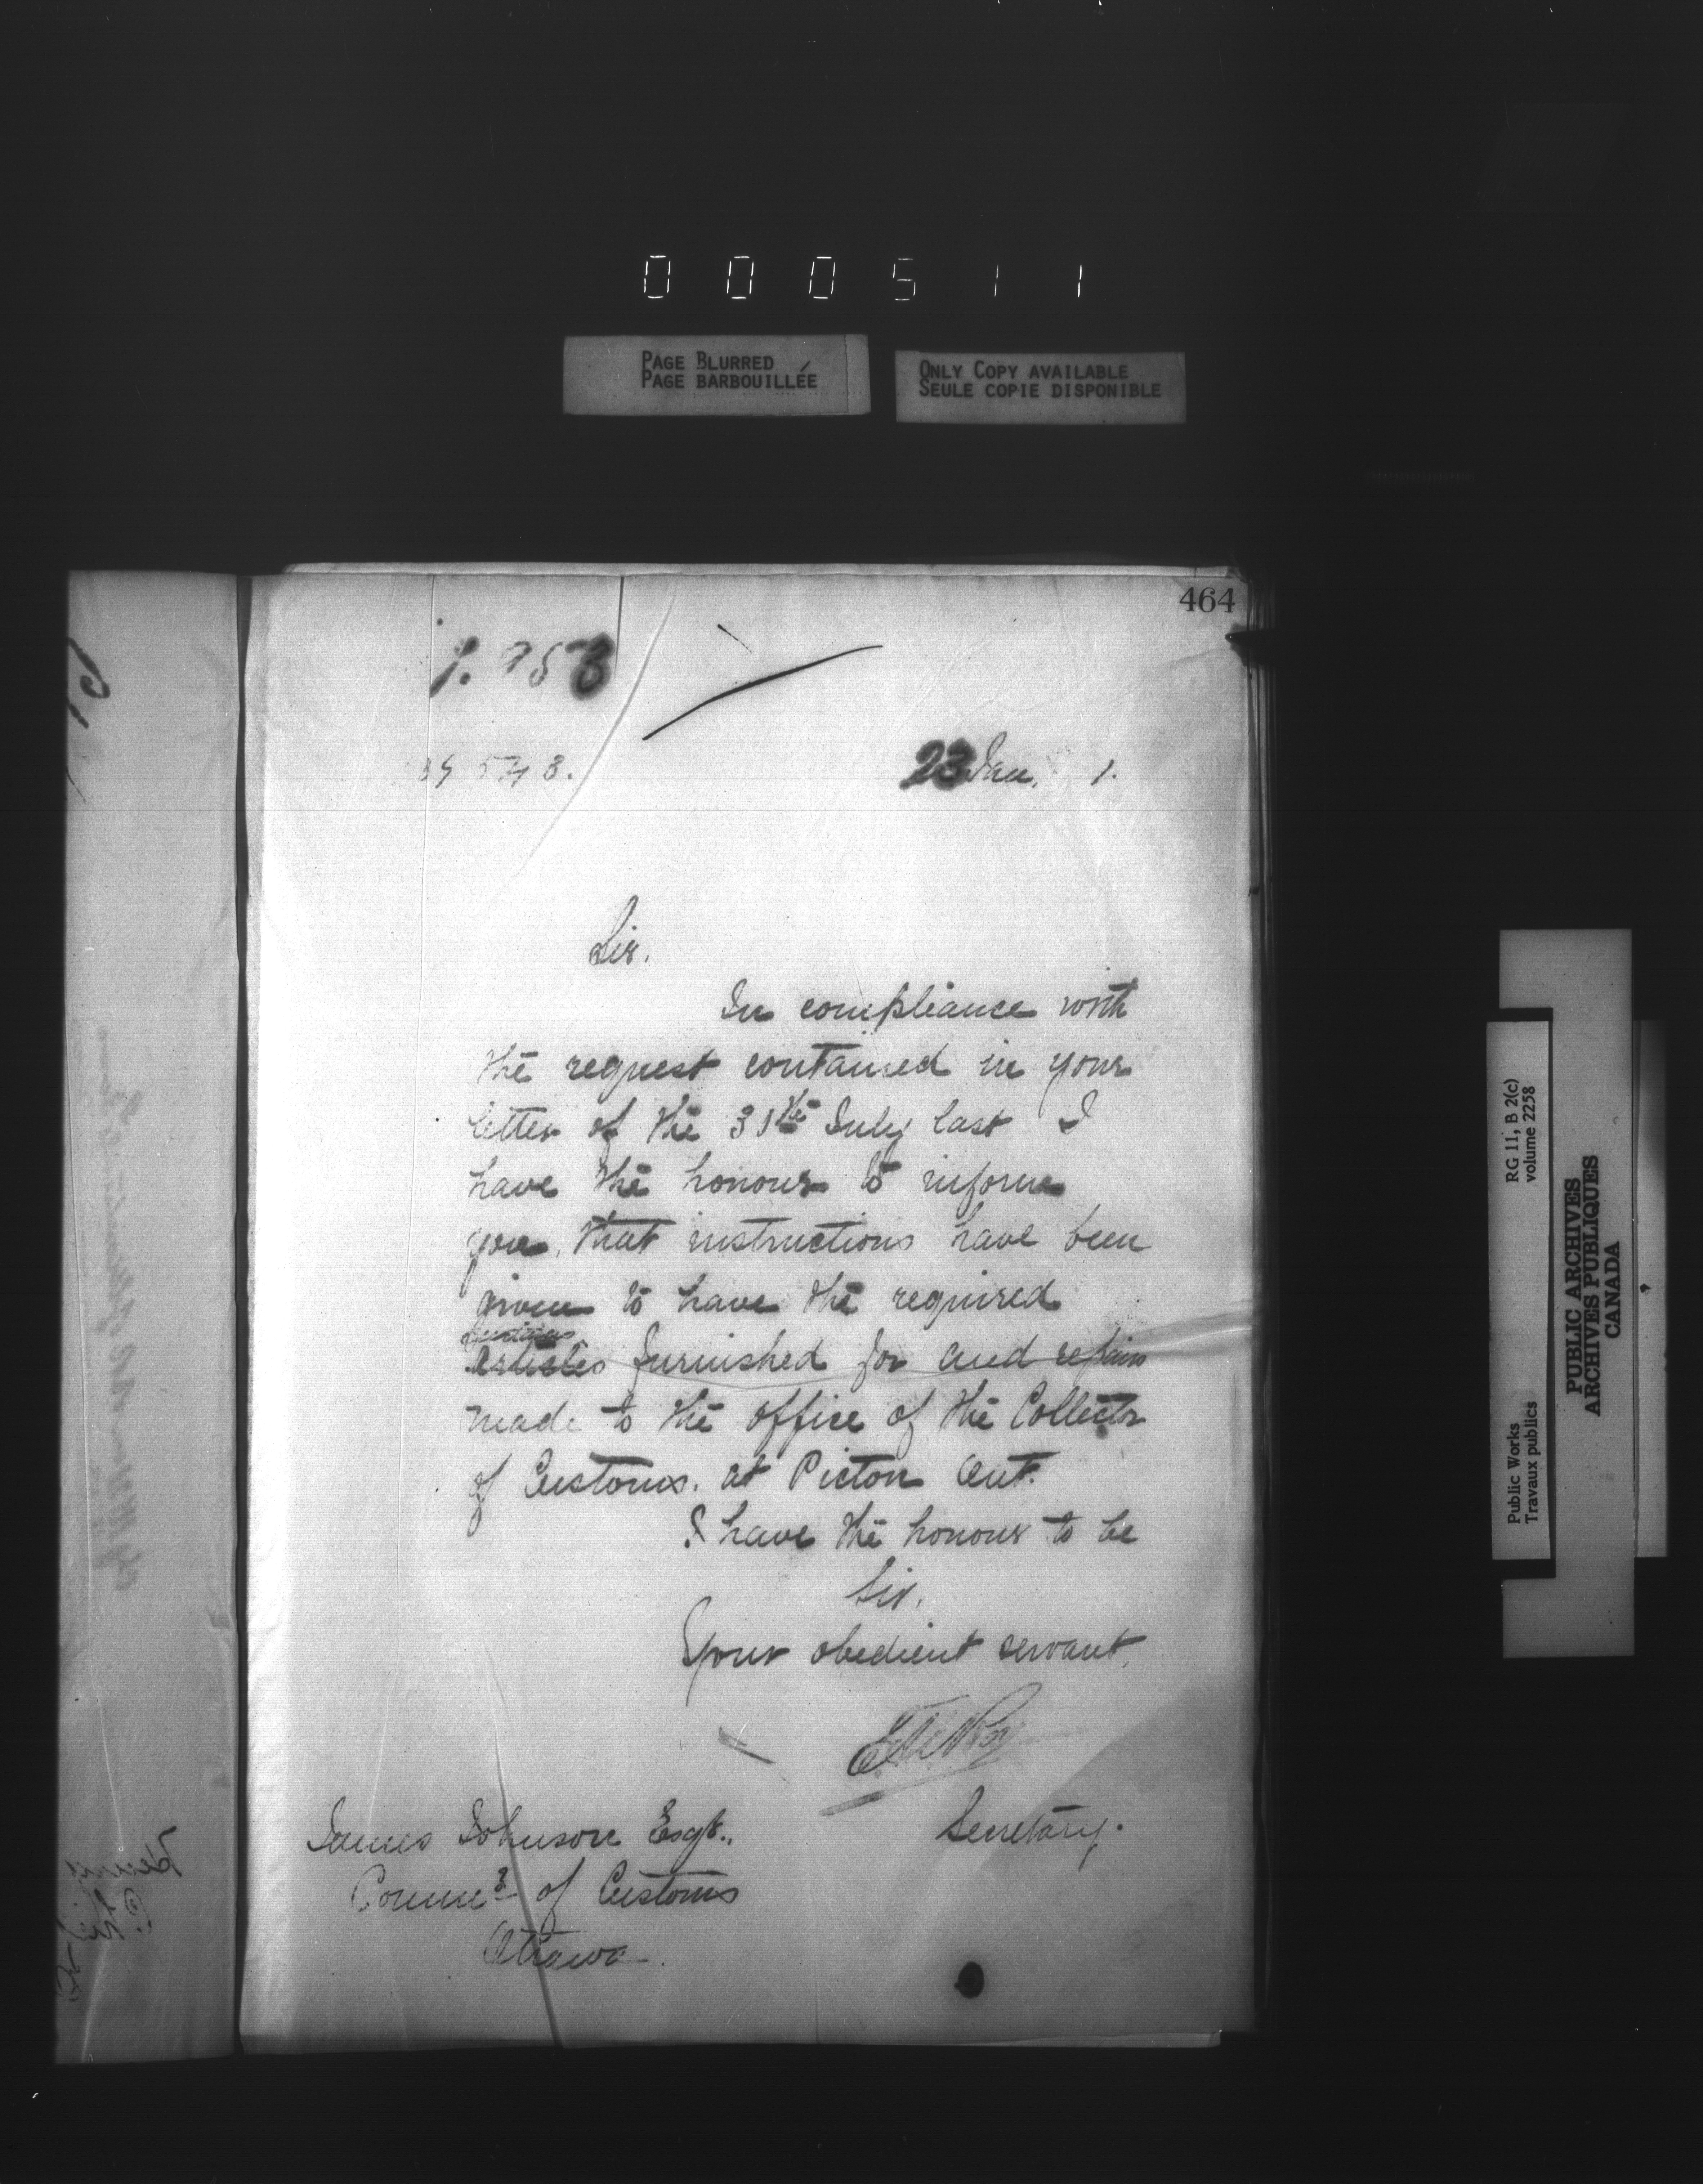 000511
PAGE BLURRED
PAGE BARBOUILLÉE
ONLY COPY AVAILABLE
SEULE COPIE DISPONIBLE
464
23 Jan. 1.
Sir.
In compliance with
the request contained in your
letter of the 31st July last I
have the honour to inform
you, that instructions have been
given to have the required
articles furnished for and repairs
made to the office of the Collector
of Customs. at Picton Ont.
I have the honour to be
Sir.
Your obedient servant.
Secretary.
James Johnson Esqr.,
Commr of Customs
Ottawa
RG 11, B 2(c)
volume 2258
Public Works
Travaux publics
PUBLIC ARCHIVES
ARCHIVES PUBLIQUES
CANADA